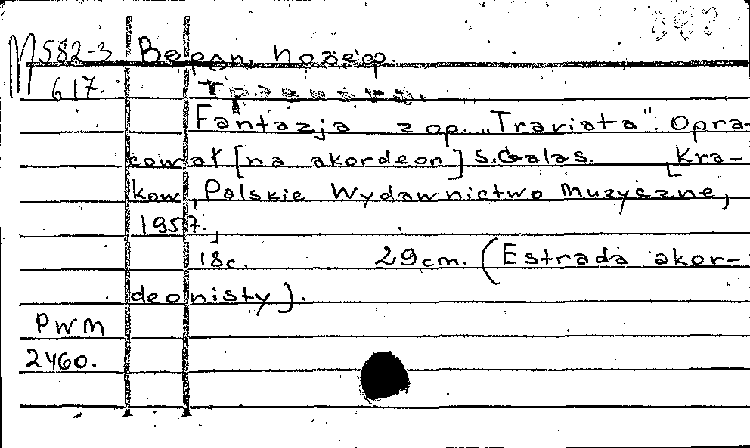 M 582-3 Верди, Иозеф.
617.
Травиата.
Fantazja z op. „Traviata". Opra-
cował [na akordeon] S. Galas. [Kra-
ków], Polskie Wydawnictwo Muzyczne,
1957.
18c. 29cm. (Estrada akor-
deonisty).
PWM
2460.